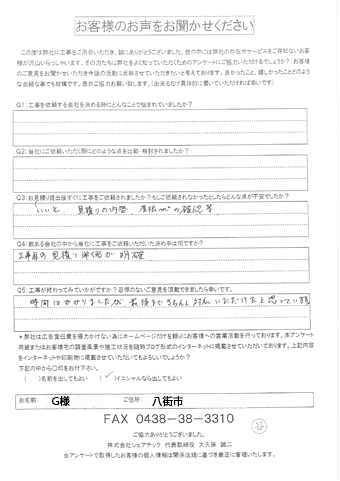 お客様のお声をお聞かせください
この度は弊社に工事をご用命いただき、誠にありがとうございました。世の中には弊社の存在やサービスをご存知ないお客
様が沢山いらっしゃいます。その方たちに弊社をよく知っていただくためのアンケートにご協力いただけるでしょうか？お客
様のご意見をお聞かせいただき今後の活動に反映させていただきたいと考えております。良かったこと、嬉しかったことどのよう
な些細な事でも結構です。是非ご協力お願い致します。（出来るだけ具体的に書いていただければ幸いです）
Q1：工事を依頼する会社を決める時にどんなことで悩まれていましたか？
Q2：当社にご依頼いただく際にどのような点を比較・検討されましたか？
Q3：お見積り提出後すぐに工事をご依頼されましたか？もしご依頼されなかったとしたらどんな点が不安でしたか？
いいえ、見積りの内容、屋根㎡の確認等
Q4：数ある会社の中から当社に工事をご依頼いただいた決め手は何ですか？
工事毎の見積り単価が明確
Q5：工事が終わってみていかがですか？忌憚のないご意見を頂戴できましたら幸いです。
時間はかかりましたが、最後まできちんと対応いただけたと思っている
＊弊社は広告宣伝費を極力かけない為にホームページだけを頼りにお客様への営業活動を行っております。本アンケート
用紙またはお客様宅の調査風景や施工状況を随時ブログ形式のインターネットに掲載させていただいております。上記内容
をインターネットや印刷物に掲載させていただいてもよろしいでしょうか？
下記の中から〇印をお付下さい。
（　）名前を出してもよい　（✓）イニシャルなら出してもよい
お名前：　G様　ご住所：　八街市
FAX 0438-38-3310
谷
ご協力ありがとうございました。
株式会社シェアテック 代表取締役 大久保 誠二
当アンケートで取得したお客様の個人情報は関係法規に基づき厳正に管理いたします。